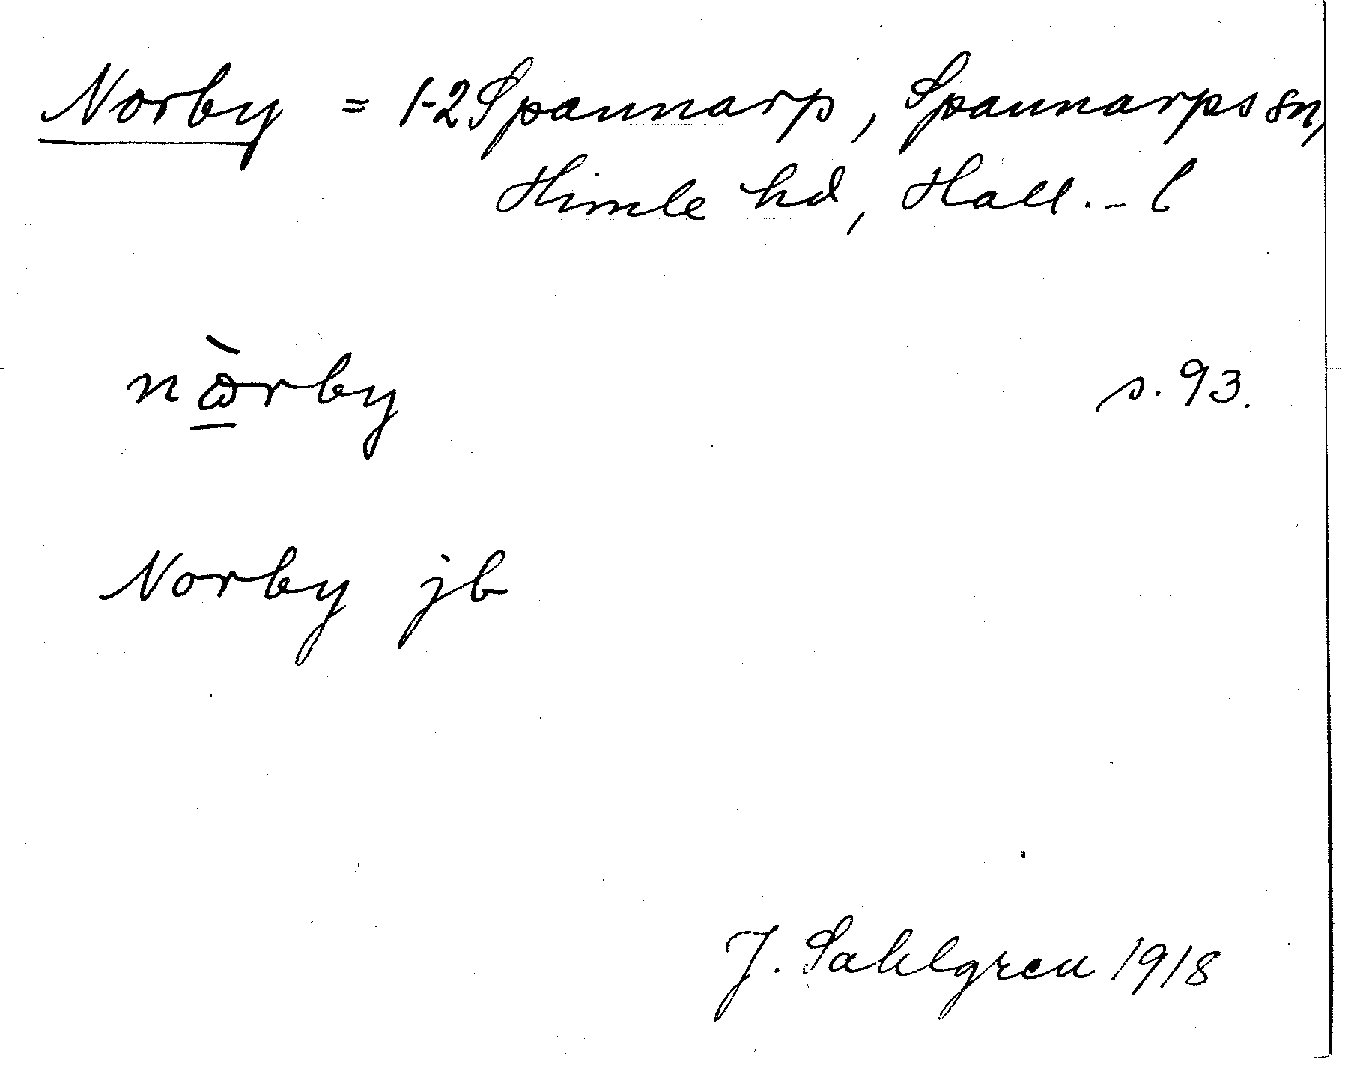 Norby = 1-2 Spannarp, Spannarps sn,
Himle hd, Hall. - l
nὼ̲rby s. 93.
Norby jb
J. Sahlgren 1918